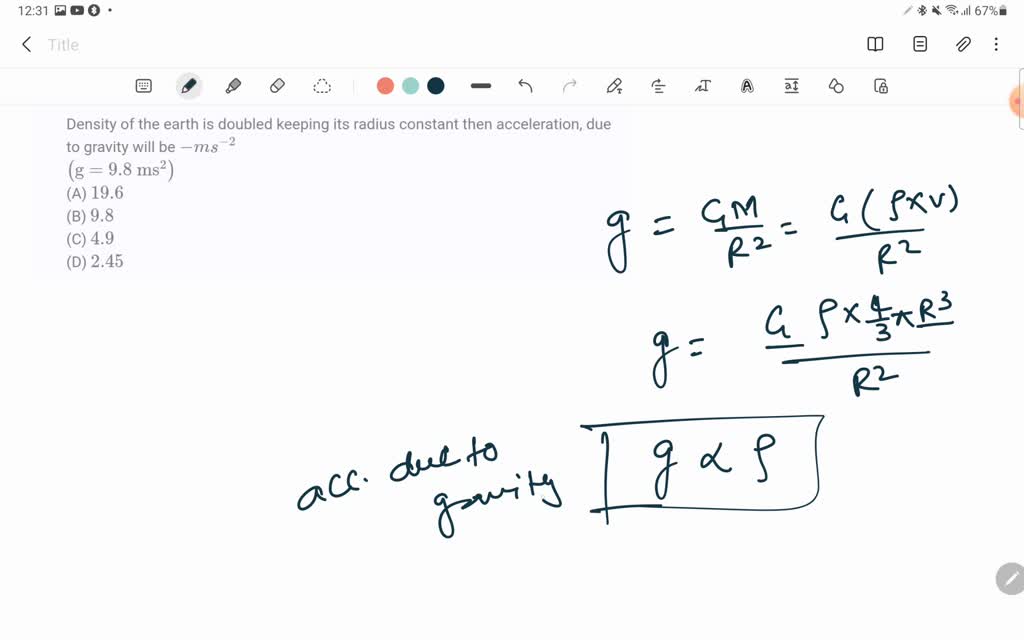 12:31
67%
Title
Density of the earth is doubled keeping its radius constant then acceleration, due
to gravity will be −ms⁻²
(g = 9.8 ms²)
(A) 19.6
(B) 9.8
(C) 4.9
(D) 2.45
g = GM/R² = G(ρ×v)/R²
g = G ρ×4/3πR³/R²
acc. due to
gravity
g ∝ ρ